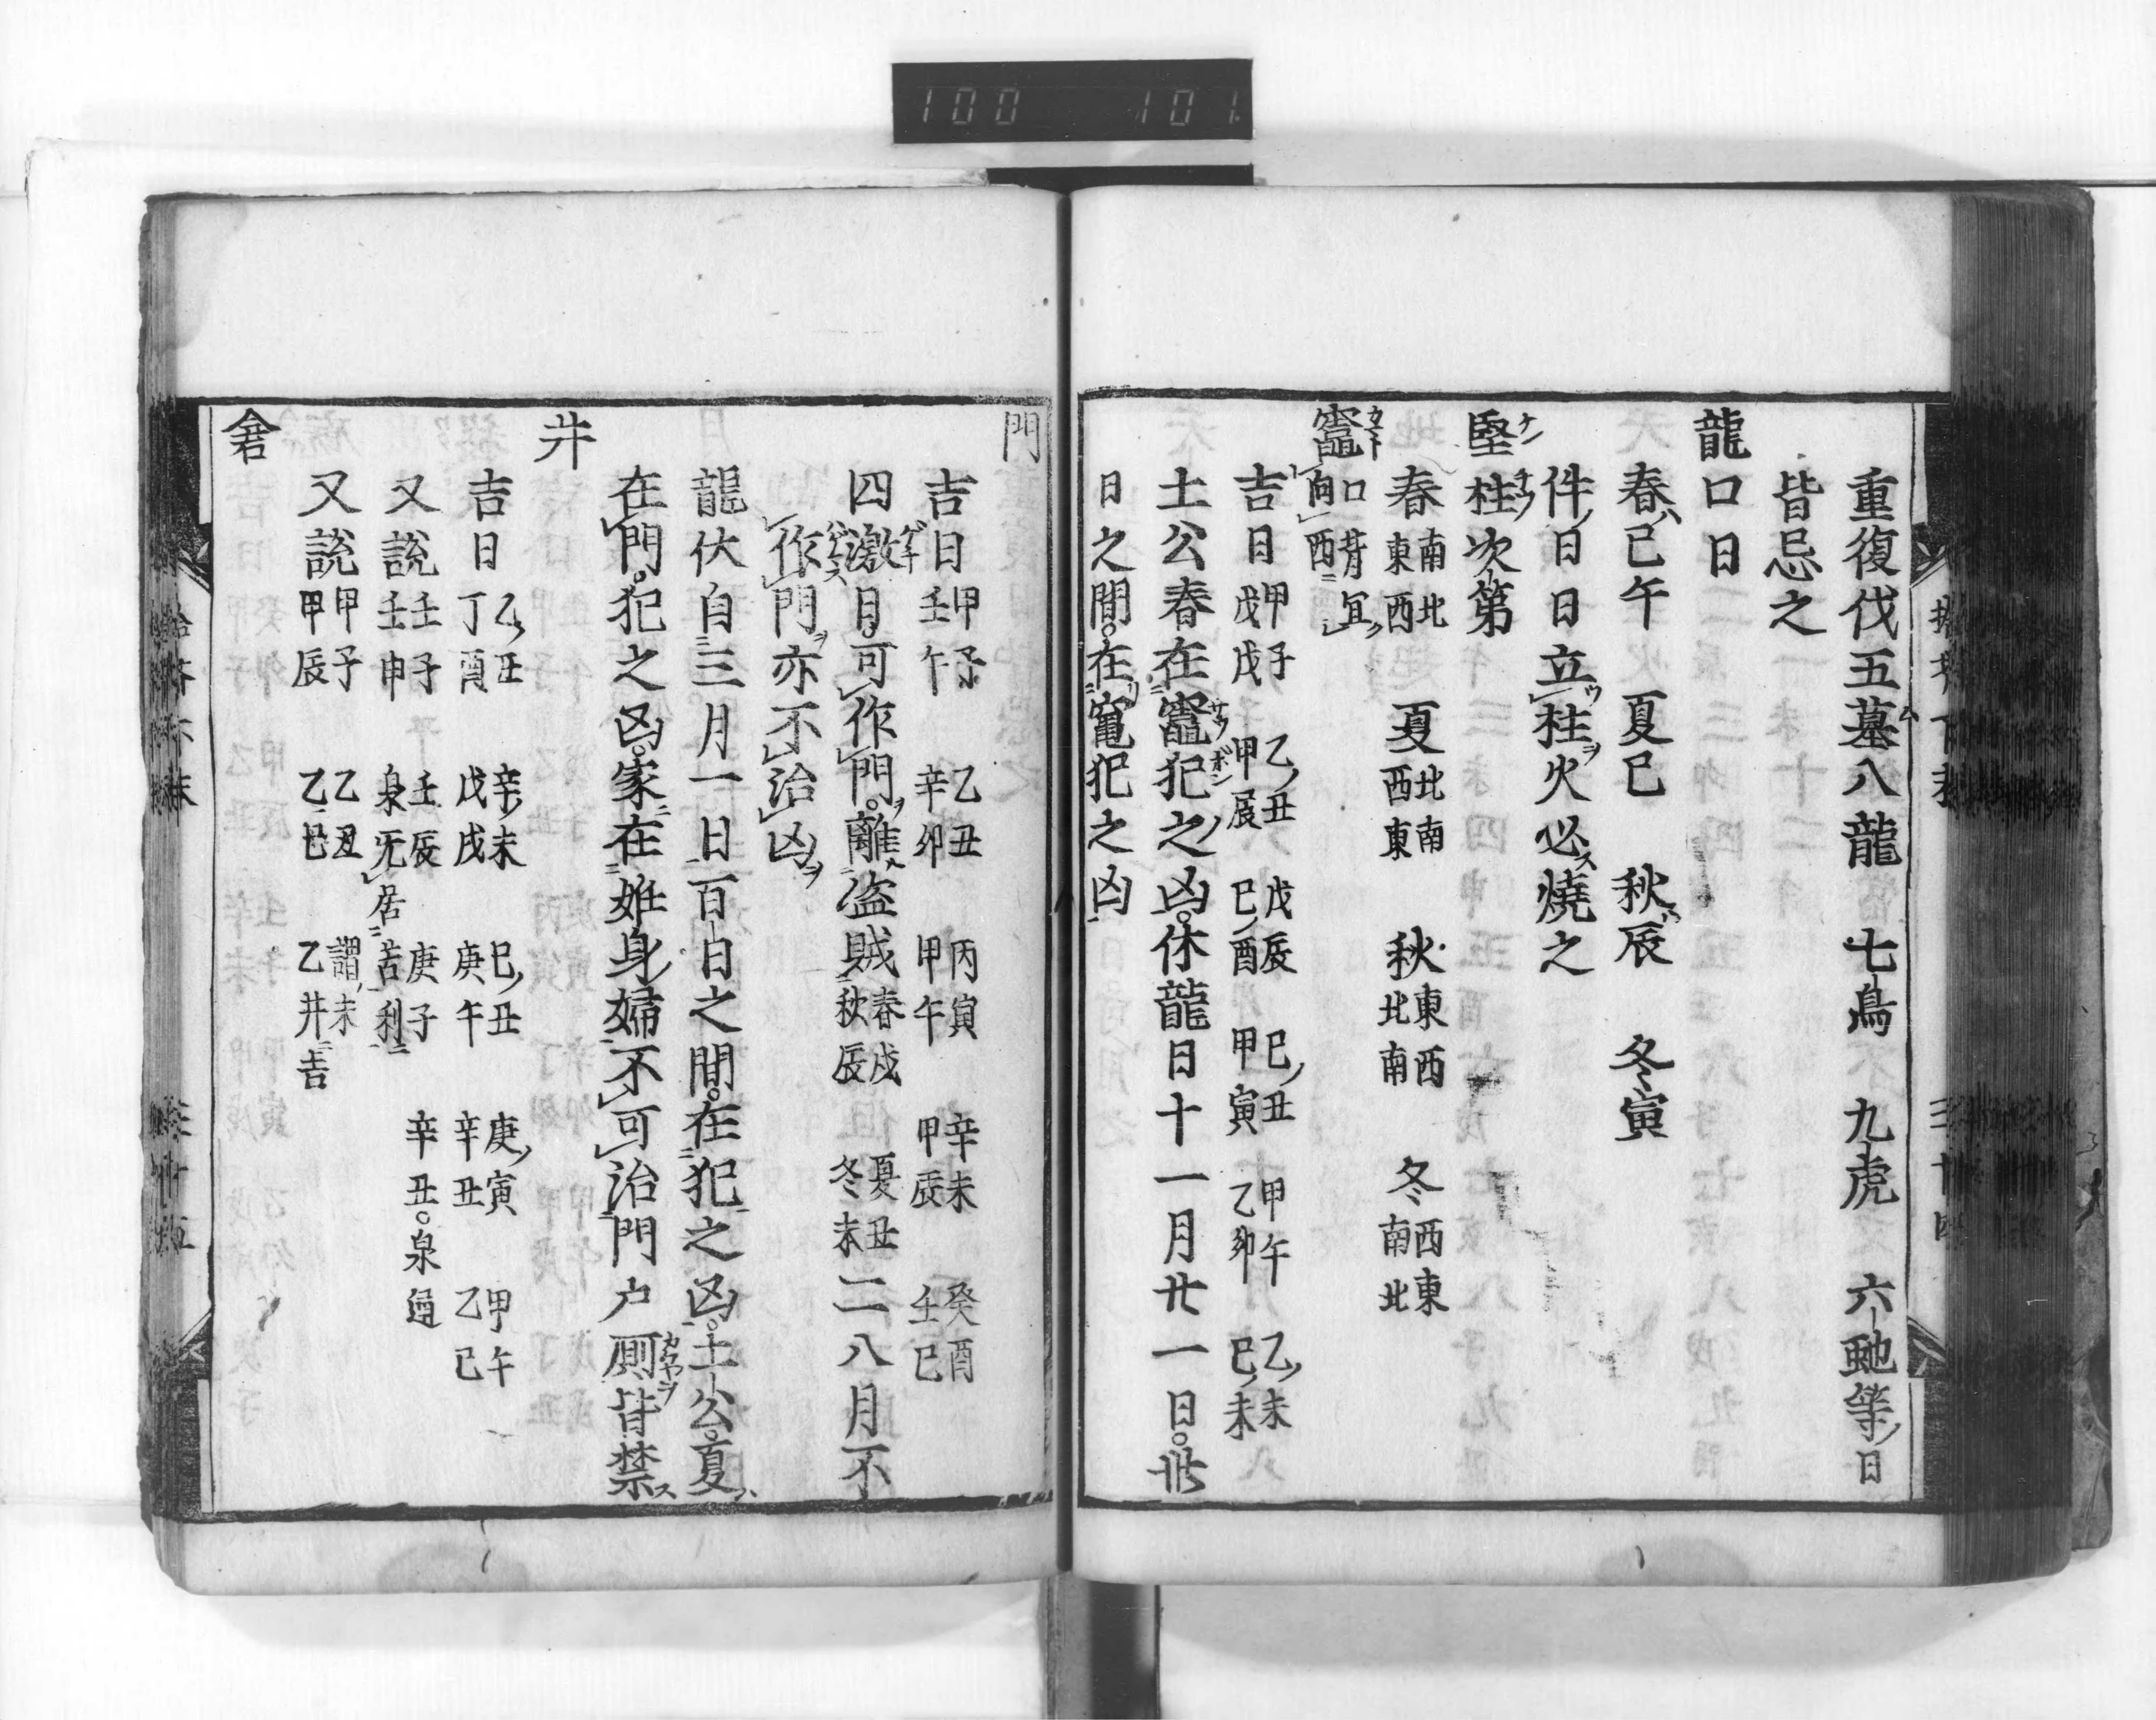 100 101
重復伐五墓八龍 七鳥 九虎 六虵等日
皆忌之
龍口日
春巳午 夏巳 秋辰 冬寅
件日日立柱火必燒之
堅柱次第
春南北東西 夏北南西東 秋東西北南 冬西東南北
竈口背冝向西
吉日甲子 乙丑 戊辰 巳丑 甲午 乙未
戊戌 甲辰 巳酉 甲寅 乙卯 巳未
土公春在竈犯之凶。休龍日十一月廿一日。卅
日之間。在竃犯之凶
門
吉日甲子 乙丑 丙寅 辛未 癸酉
壬午 辛卯 甲午 甲辰 壬巳
四激日。可作門。離盗賊春戌 夏丑 秋辰 冬未二八月不
作門亦不治凶
龍伏自三月一日百日之間。在犯之凶。土公。夏
在門。犯之凶。家在姙身婦不可治門户厠皆禁
井
吉日乙丑 辛未 巳丑 庚寅 甲午
丁酉 戊戌 庚午 辛丑 乙巳
又説壬子 壬辰 庚子 辛丑。泉通
壬申 泉旡居苦利
又説甲子 乙丑 謂未
甲辰 乙巳 乙井吉
倉